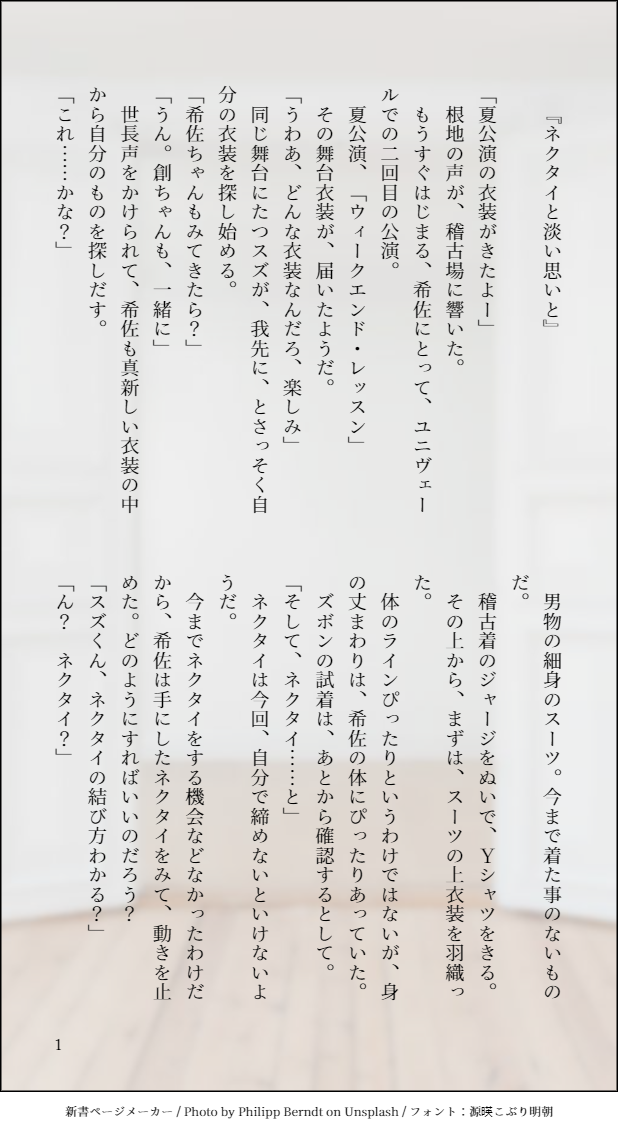 『ネクタイと淡い思いと』
「夏公演の衣装がきたよー」
根地の声が、稽古場に響いた。
もうすぐはじまる、希佐にとって、ユニヴェー
ルでの二回目の公演。
夏公演、「ウィークエンド・レッスン」
その舞台衣装が、届いたようだ。
「うわあ、どんな衣装なんだろ、楽しみ」
同じ舞台にたつスズが、我先に、とさっそく自
分の衣装を探し始める。
「希佐ちゃんもみてきたら？」
「うん。創ちゃんも、一緒に」
世長声をかけられて、希佐も真新しい衣装の中
から自分のものを探しだす。
「これ……かな？」
男物の細身のスーツ。今まで着た事のないもの
だ。
稽古着のジャージをぬいで、Ｙシャツをきる。
その上から、まずは、スーツの上衣装を羽織っ
た。
体のラインぴったりというわけではないが、身
の丈まわりは、希佐の体にぴったりあっていた。
ズボンの試着は、あとから確認するとして。
「そして、ネクタイ……と」
ネクタイは今回、自分で締めないといけないよ
うだ。
今までネクタイをする機会などなかったわけだ
から、希佐は手にしたネクタイをみて、動きを止
めた。どのようにすればいいのだろう？
「スズくん、ネクタイの結び方わかる？」
「ん？　ネクタイ？」
1
新書ページメーカー / Photo by Philipp Berndt on Unsplash / フォント：源暎こぶり明朝